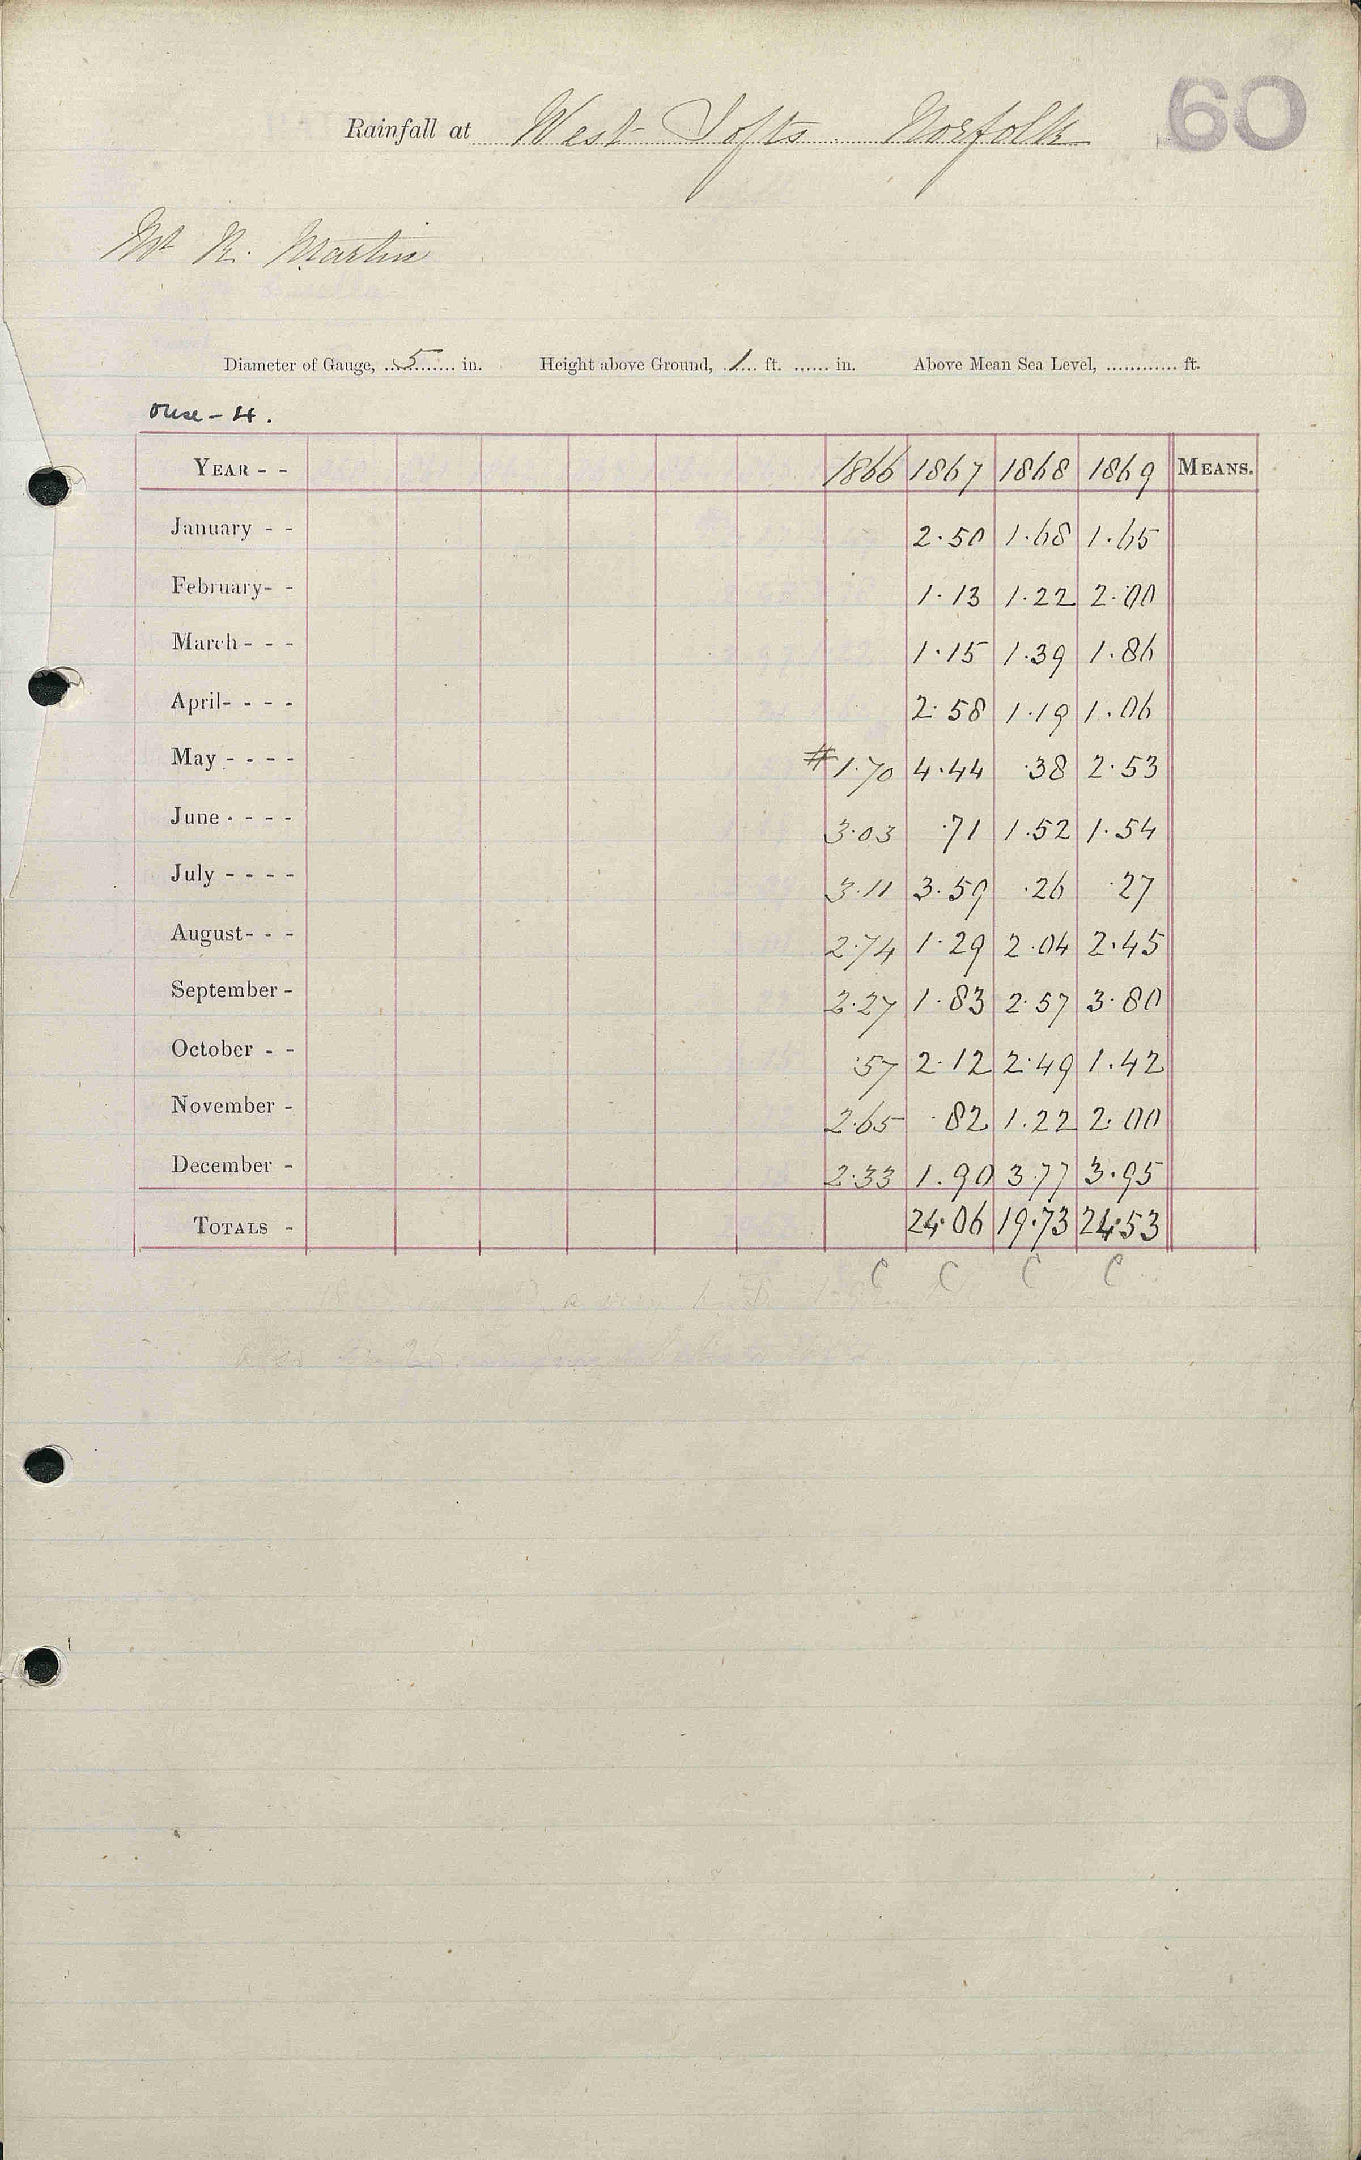 60
Rainfall at West Tofts Norfolk
Mr R. Martin
Diameter of Gauge, 5 in. Height above Ground, 1 ft. in. Above Mean Sea Level, ft.
Ouse - 4.
YEAR - - 1866 1867 1868 1869 MEANS.
January - - 2.50 1.68 1.65
February- - 1.13 1.22 2.00
March - - - 1.15 1.39 1.86
April- - - - 2.58 1.19 1.06
May - - - - #1.70 4.44 .38 2.53
June - - - - 3.03 .71 1.52 1.54
July - - - - 3.11 3.59 .26 .27
August- - - 2.74 1.29 2.04 2.45
September - 2.27 1.83 2.57 3.80
October - - .57 2.12 2.49 1.42
November - 2.65 .82 1.22 2.00
December - 2.33 1.90 3.77 3.95
TOTALS - 24.06 19.73 24.53
C C C C